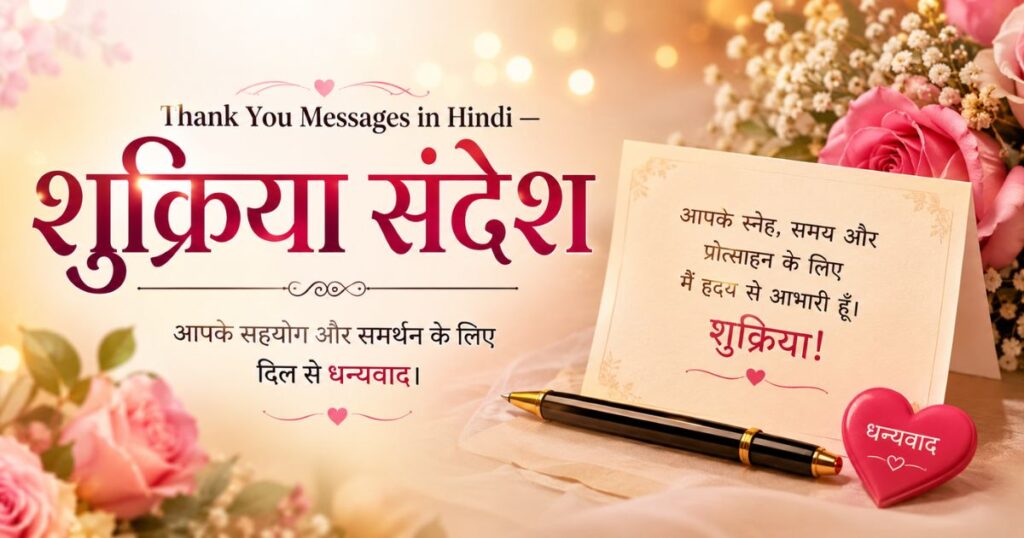 Thank You Messages in Hindi –
शुक्रिया संदेश
आपके सहयोग और समर्थन के लिए
दिल से धन्यवाद।
आपके स्नेह, समय और
प्रोत्साहन के लिए
मैं हृदय से आभारी हूँ।
शुक्रिया!
धन्यवाद